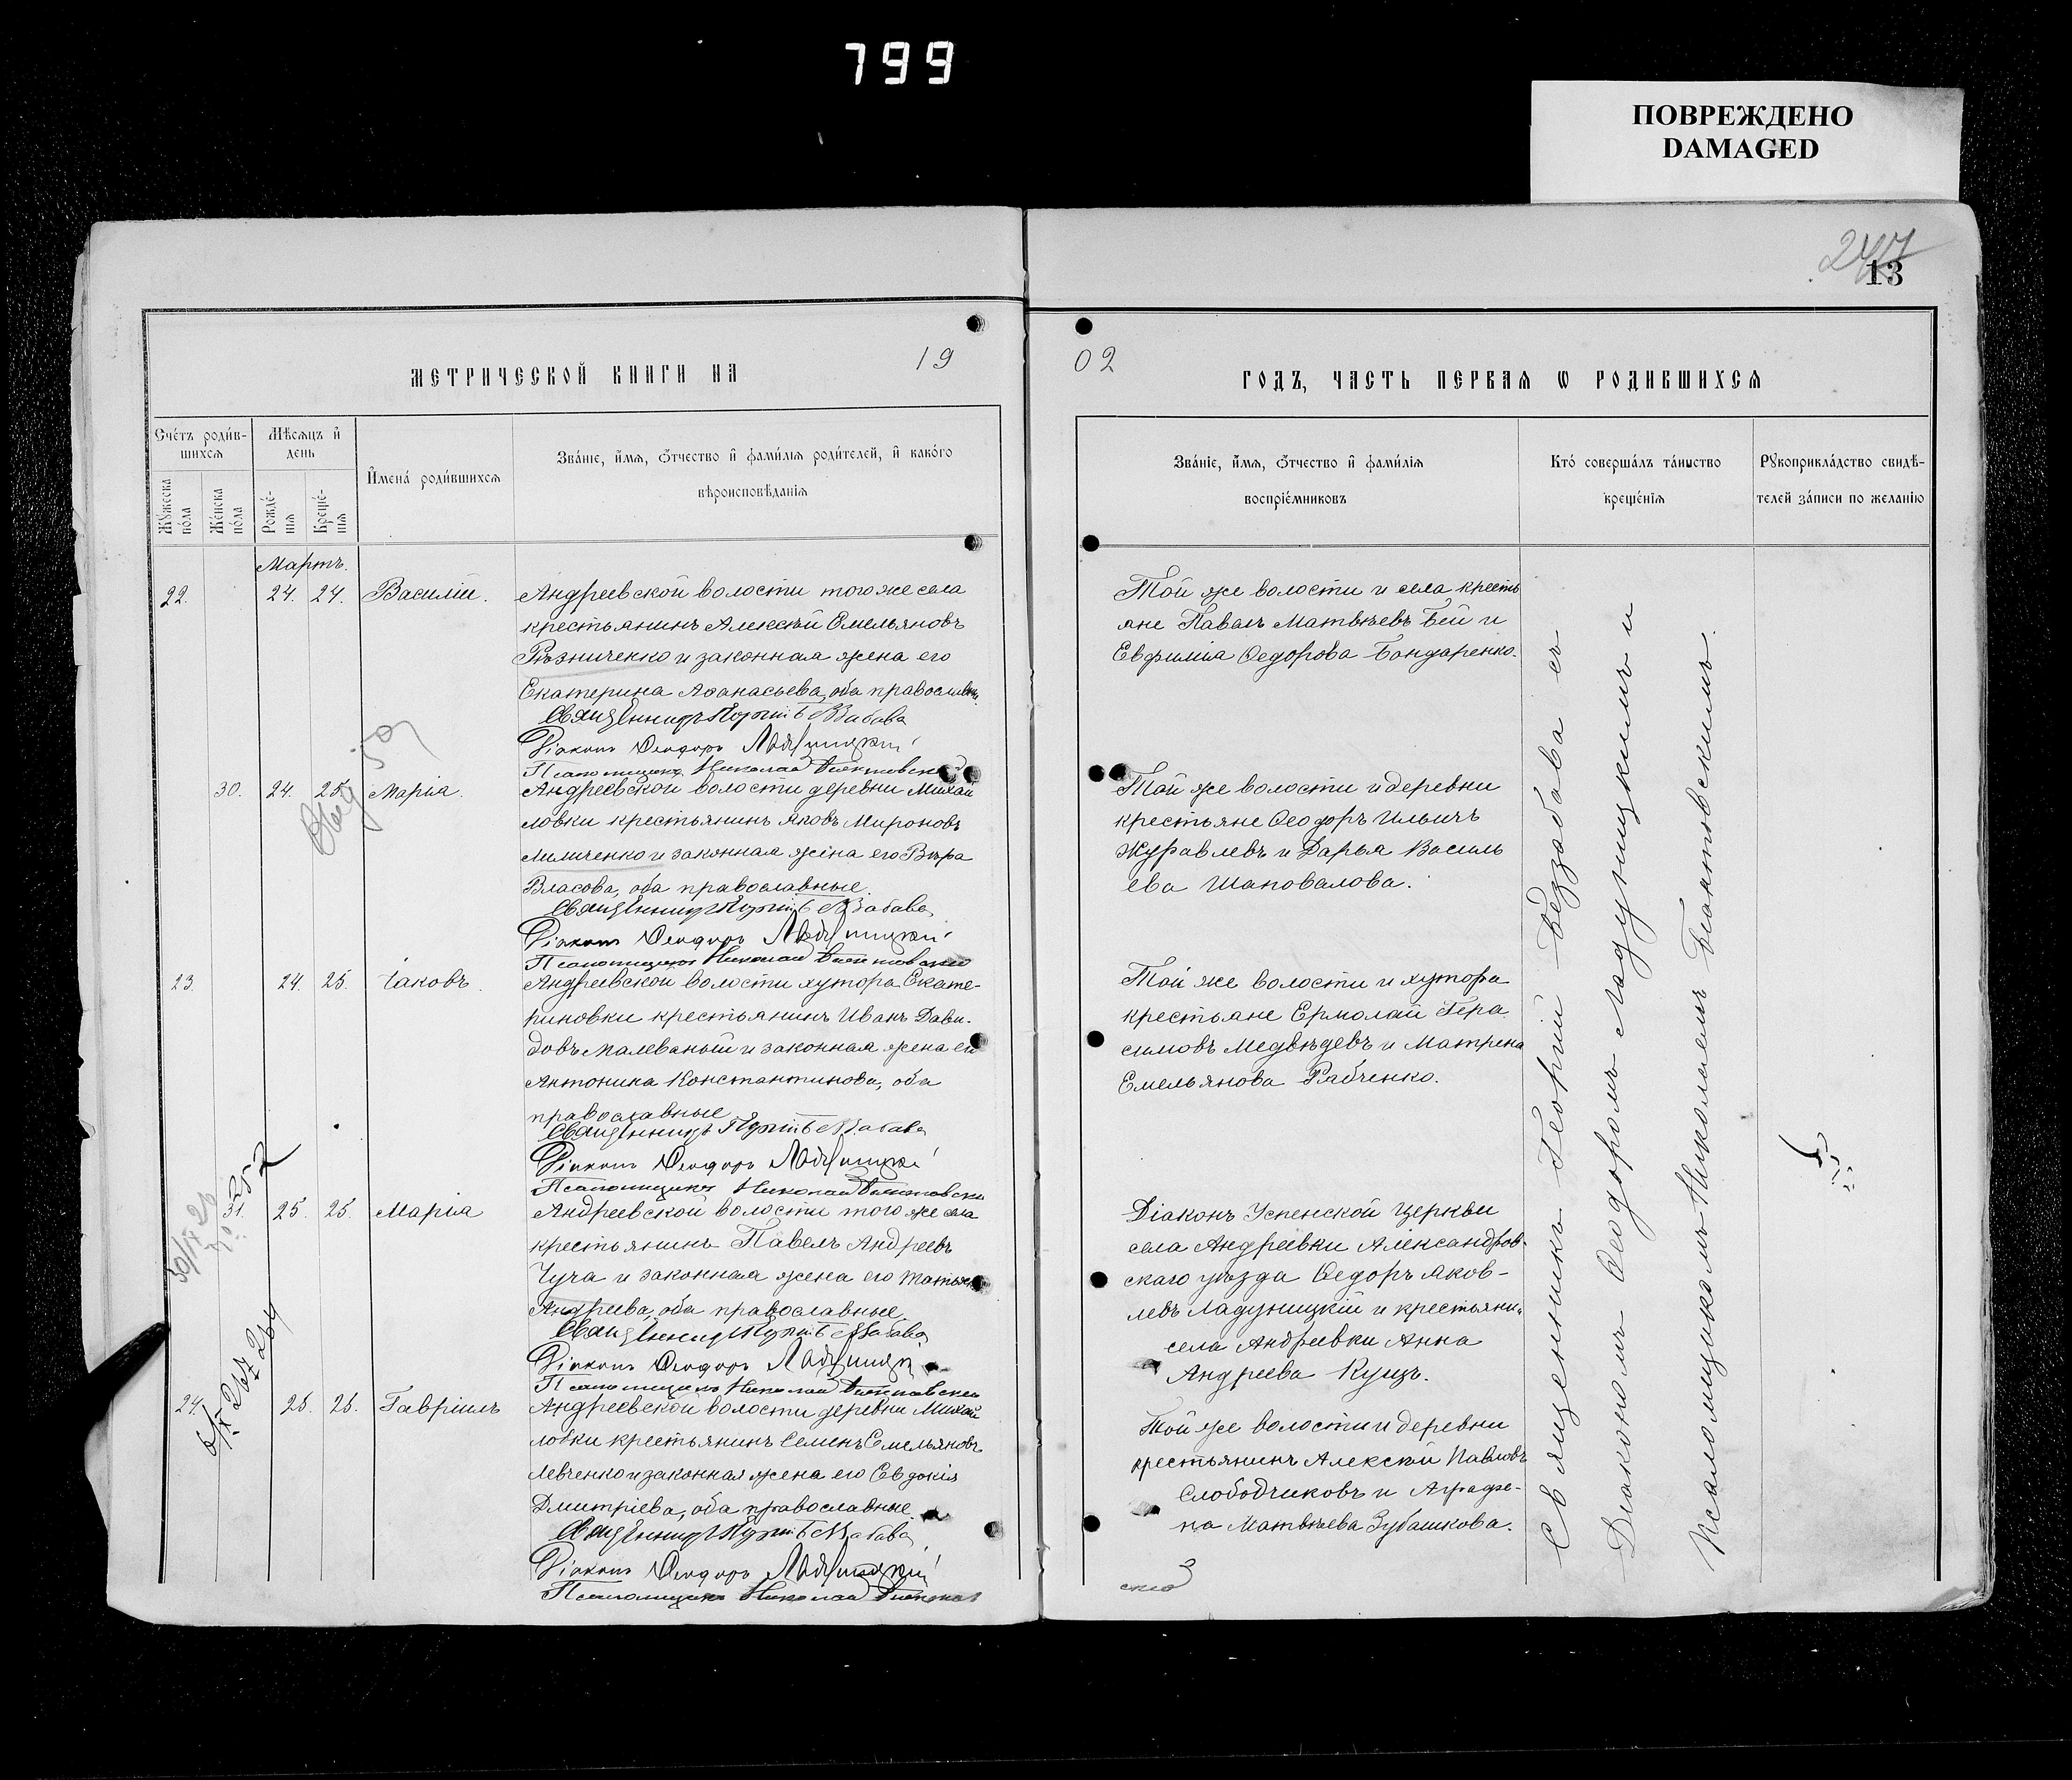 799
ПОВРЕЖДЕНО
DAMAGED
247
13
МЕТРИЧЕСКОЙ КНИГИ НА 19
02 ГОДЪ, ЧАСТЬ ПЕРВАЯ Ѡ РОДИВШИХСЯ
Счетъ родив-
шихся
Мѣсяцъ и
день
Мужеска
пола
Женска
пола
Рожде-
нія
Креще-
нія
Имена родившихся
Званіе, имя, отчество и фамилія родителей, и какого
вѣроисповѣданія
Званіе, имя, отчество и фамилія
воспріемниковъ
Кто совершалъ таинство
крещенія
Рукоприкладство свидѣ-
телей записи по желанію
Мартъ.
22. 24. 24. Василій.
Андреевской волости того же села
крестьянинъ Алексѣй Емельяновъ
Рѣзниченко и законная жена его
Екатерина Аѳанасьева, оба православн.
Священникъ Георгій Беззабава
Діаконъ Ѳеодоръ Ладуницкій
Псаломщикъ Николай
Той же волости и села кресть
яне Павелъ Матвѣевъ Бей и
Евфимія Ѳедорова Бондаренко.
30. 24. 25. Марія.
Андреевской волости деревни Михай
ловки крестьянинъ Яковъ Мироновъ
и законная жена его Вѣра
Власова, оба православные.
Священникъ Георгій Беззабава
Діаконъ Ѳеодоръ Ладуницкій
Псаломщикъ Николай
Той же волости и деревни
крестьяне Ѳеодоръ Ильичъ
Журавлевъ и Дарья Василь
ева Шаповалова.
23. 24. 25. Іаковъ.
Андреевской волости хутора Екате-
риновки крестьянинъ Иванъ Дави-
довъ Малеваный и законная жена ег
Антонина Константинова, оба
православные
Священникъ Георгій Беззабава
Діаконъ Ѳеодоръ Ладуницкій
Псаломщикъ Николай
Той же волости и хутора
крестьяне Ермолай Гера
симовъ Медвѣдевъ и Матрена
Емельянова Рабченко.
31. 25. 25. Марія
Андреевской волости того же села
крестьянинъ Павелъ Андреевъ
Чуча и законная жена его Татьян
Андреева, оба православные
Священникъ Георгій Беззабава
Діаконъ Ѳеодоръ Ладуницкій
Псаломщикъ Николай
Діаконъ Успенской церкви
села Андреевки Александров-
скаго уѣзда Ѳедоръ Яков-
левъ Ладуницкій и крестьянк
села Андреевки Анна
Андреева Куцъ.
24. 25. 25. Гавріилъ
Андреевской волости деревни Михай
ловки крестьянинъ Семенъ Емельяновъ
Левченко и законная жена его Евдокія
Дмитріева, оба православные.
Священникъ Георгій Беззабава
Діаконъ Ѳеодоръ Ладуницкій
Псаломщикъ Николай
Той же волости и деревни
крестьянинъ Алексѣй Павловъ
Слободчиковъ и Аграфе-
на Матвѣева Зубашкова.
Священникъ Георгій Беззабава съ
Діакономъ Ѳеодоромъ Ладуницкимъ и
Псаломщикомъ Николаемъ